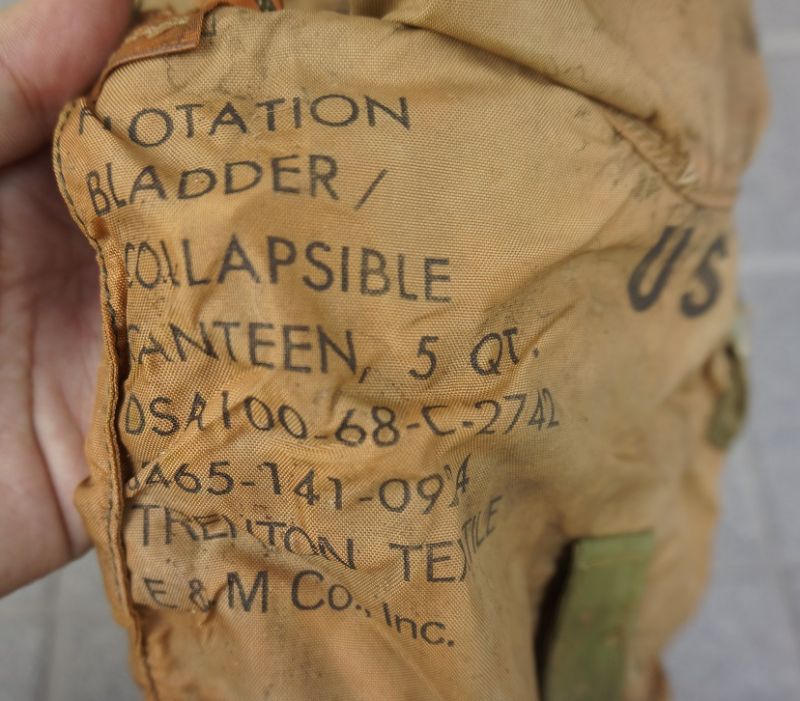 FLOTATION
BLADDER /
COLLAPSIBLE
CANTEEN, 5 QT.
DSA100-68-C-2742
TRENTON TEXTILE
E & M Co., Inc.
US